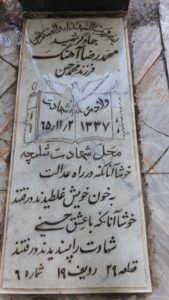 جاوید شهید
محمدرضا آهنگ
فرزند محمدحسن
ولادت شهادت
۱۳۳۷ ۶۵/۱۱/۲
محل شهادت شلمچه
خوشا آنانکه در راه عدالت
به خون خویش غلطیدند و رفتند
خوشا آنانکه با عشق حسینی
شهادت را پسندیدند و رفتند
قطعه ۲۹ ردیف ۱۹ شماره ۶